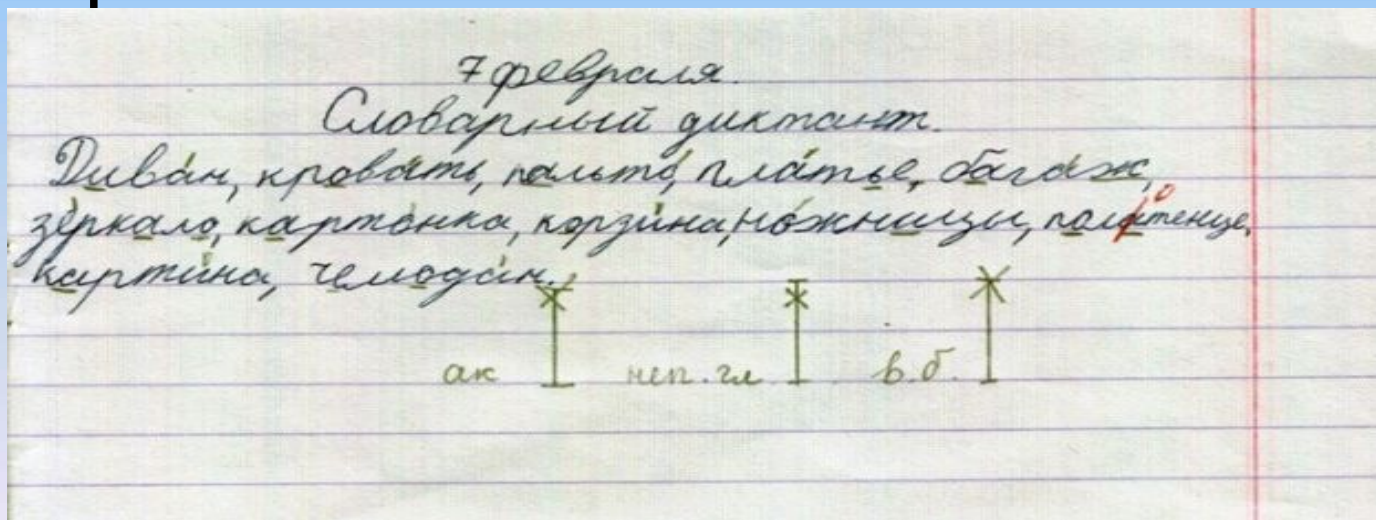 7 февраля.
Словарный диктант.
Дива́н, крова́ть, пальто́, пла́тье, бага́ж,
зе́ркало, карто́нка, корзи́на, но́жницы, полотенце,
карти́на, чемода́н.
ак неп.гл в.б.